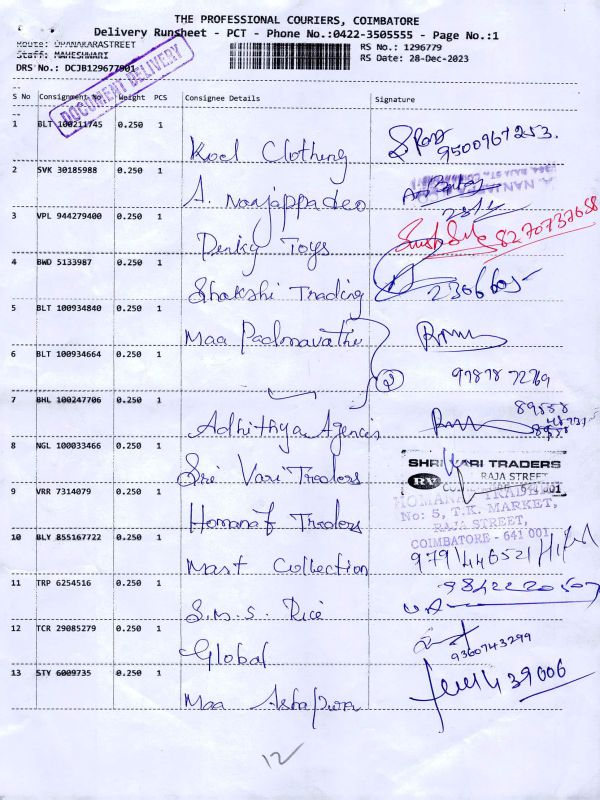 THE PROFESSIONAL COURIERS, COIMBATORE
Delivery Runsheet - PCT - Phone No.:0422-3505555 - Page No.:1
Route: OPANAKARASTREET
RS No.: 1296779
Staff: MAHESHWARI
RS Date: 28-Dec-2023
DRS No.: DCJB129677901
DOCUMENT DELIVERY
S No Consignment No Weight PCS Consignee Details Signature
1 BLT 100211745 0.250 1 Koel Clothing 9500967253.
2 SVK 30185988 0.250 1 A. Nanjappadeo
3 VPL 944279400 0.250 1 Denky Toys 8270737658
4 BWD 5133987 0.250 1 Shakshi Trading 2306605-
5 BLT 100934840 0.250 1 Maa Padmavathi
6 BLT 100934664 0.250 1 2 97878 72769
7 BHL 100247706 0.250 1 Adhithya Agencies 89558
8 NGL 100033466 0.250 1 Sri Vari Traders
SHRI VARI TRADERS
RAJA STREET
RV
9 VRR 7314079 0.250 1 Homanaf Traders
No: 5, T.K. MARKET,
RAJA STREET,
COIMBATORE - 641 001
10 BLY 855167722 0.250 1 Mast Collection
11 TRP 6254516 0.250 1 S.M.S. Rice
12 TCR 29085279 0.250 1 Global 9360743299
13 STY 6009735 0.250 1 Maa Ashapura 439006
12